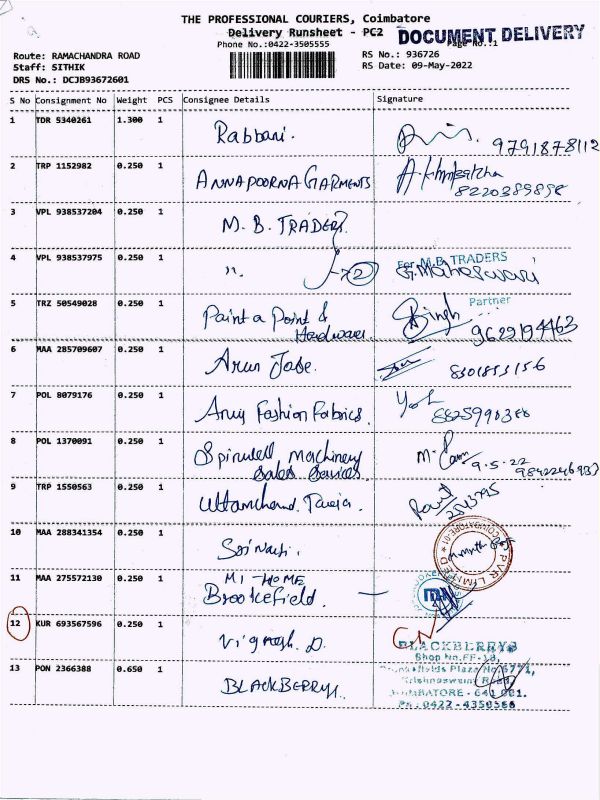 THE PROFESSIONAL COURIERS, Coimbatore
Delivery Runsheet - PC2
DOCUMENT DELIVERY
Phone No.:0422-3505555
Page No.:1
Route: RAMACHANDRA ROAD
RS No.: 936726
Staff: SITHIK
RS Date: 09-May-2022
DRS No.: DCJB93672601
S No Consignment No Weight PCS Consignee Details Signature
1 TDR 5340261 1.300 1 Rabbani. 9791878112
2 TRP 1152982 0.250 1 ANNAPOORNA GARMENTS
8220389898
3 VPL 938537204 0.250 1 M.B. TRADERS
4 VPL 938537975 0.250 1 " x2 For M.B. TRADERS
G. Maheswari
Partner
5 TRZ 50549028 0.250 1 Paint a Point & Singh
Hardware. 9629194463
6 MAA 285709607 0.250 1 Arun Jobe.
7 POL 8079176 0.250 1 Anuj Fashion Fabrics.
8 POL 1370091 0.250 1 Spinwell Machinery
Sales Services. 9.5.22
9 TRP 1550563 0.250 1 Uttamchand
10 MAA 288341354 0.250 1
11 MAA 275572130 0.250 1 MI-HOME
Brookefield.
12 KUR 693567596 0.250 1 Vignesh. D.
BLACKBERRYS
Shop No.FF-18,
13 PON 2366388 0.650 1 BLACKBERRYS.
Brookefields Plaza No.67/1,
Krishnaswamy Road,
COIMBATORE - 641 001.
Ph: 0422-4350566